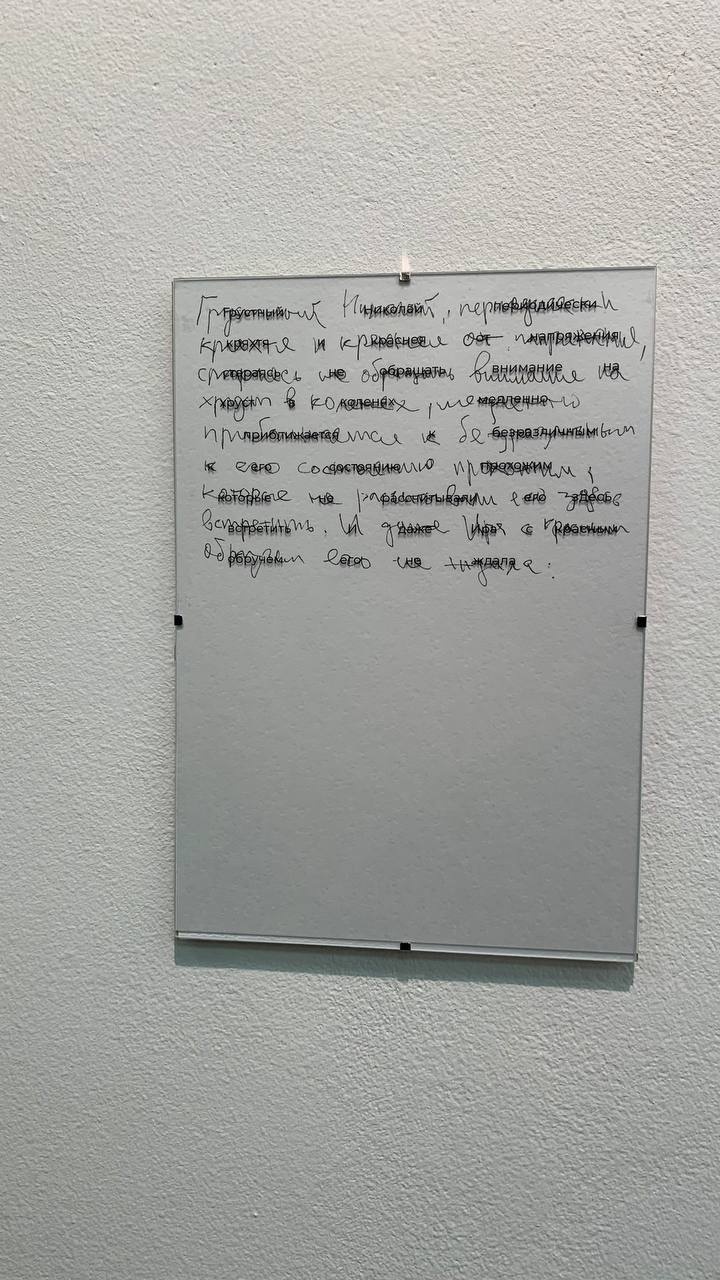 Грустный Николай, периодически
кряхтя и краснея от напряжения,
стараясь не обращать внимание на
хруст в коленях, медленно
приближается к безразличным
к его состоянию прохожим,
которые не рассчитывали его здесь
встретить. И даже Ира с красным
обручем его не ждала.